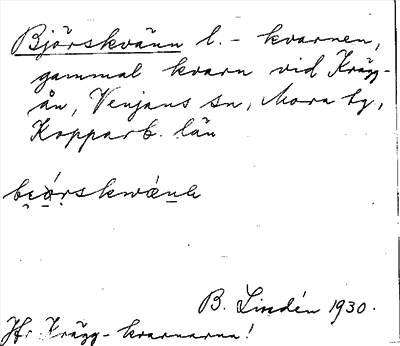 Björskvänn l. - kvarnen,
gammal kvarn vid Krägg-
ån, Venjans sn, Mora tg,
Kopparb. län
B. Lindén 1930.
Jfr Krägg-kvarnarna!